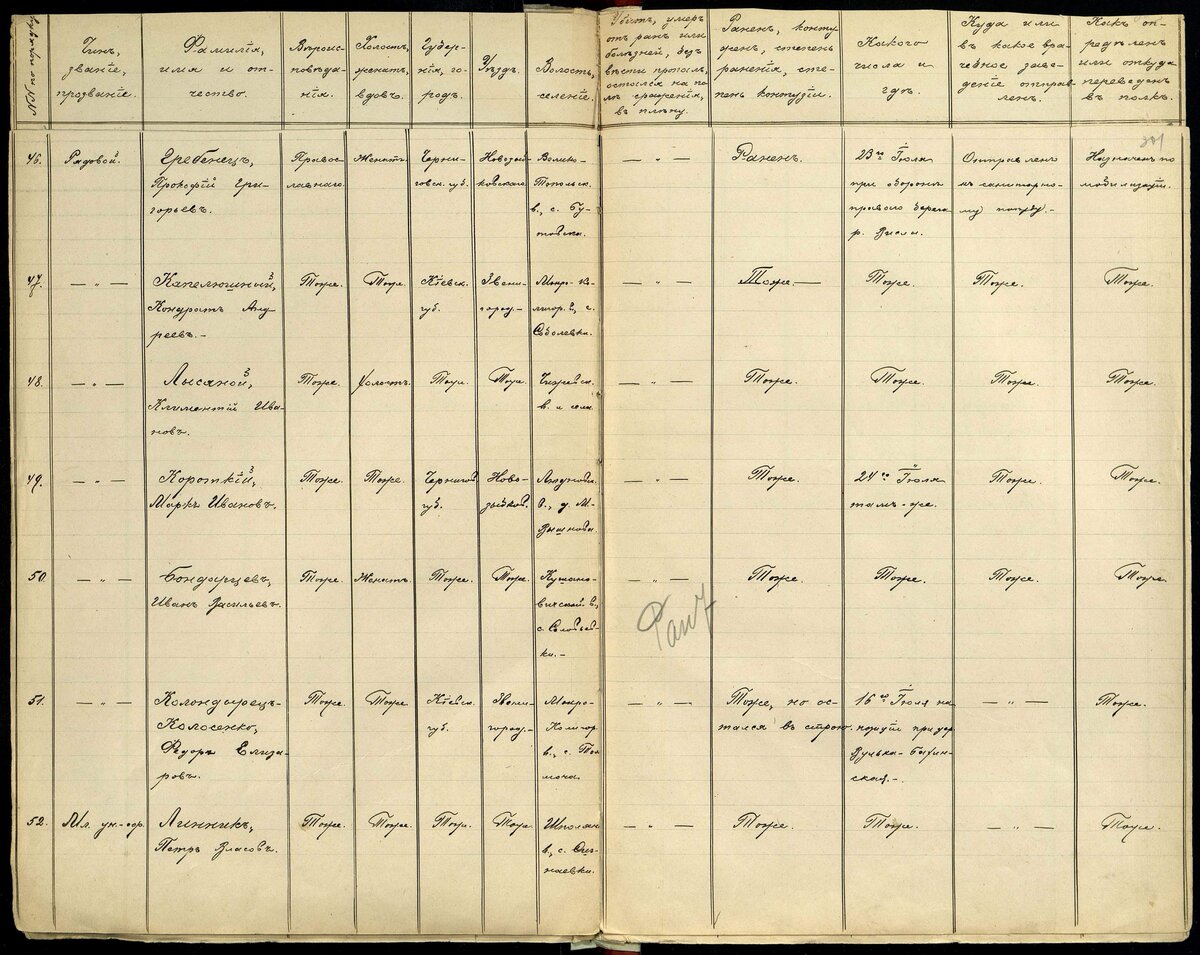 NN по порядку
Чинъ,
званіе,
прозваніе.
Фамилія,
имя и от-
чество.
Вѣроис-
повѣда-
нія.
Холостъ,
женатъ,
вдовъ.
Губер-
нія, го-
родъ.
Уѣздъ.
Волость,
селеніе.
Убитъ, умеръ
отъ ранъ или
болѣзней, безъ
вѣсти пропалъ,
остался на по-
лѣ сраженія,
въ плѣну.
Раненъ, конту-
женъ, степень
раненія, сте-
пень контузіи.
Какого
числа и
годъ.
Куда или
въ какое вра-
чебное заве-
деніе отправ-
ленъ.
Какъ оп-
редѣленъ
или откуда
переведенъ
въ полкъ.
46.
Рядовой.
Гребенецъ,
Прокофій Гри-
горьевъ.
Правос-
лавнаго.
Женатъ.
Черни-
говск. губ.
Новозыб-
ковскаго.
Велико-
Топольск.
в., с. Бу-
товска.
— „ —
Раненъ.
23го Іюля
при оборонѣ
праваго берега
р. Вислы.
Отправленъ
къ санитарно-
му поѣзду.-
Назначенъ по
мобилизаціи.
47.
— „ —
Капелюшный,
Кондратъ Анд-
реевъ.-
Тоже.
Тоже.
Кіевск.
губ.
Звени-
город.-
Мокро-Ка-
лигор. в., с.
Соболевки.
— „ —
Тоже.—
Тоже.
Тоже.
Тоже.
48.
— „ —
Лысяной,
Климентій Ива-
новъ.
Тоже.
Холостъ.
Тоже.
Тоже.
в. и села
— „ —
Тоже.
Тоже.
Тоже.
Тоже.
49.
— „ —
Короткій,
Маркъ Ивановъ.
Тоже.
Тоже.
Чернигов.
губ.
Ново-
зыбков.
в., д. М.
— „ —
Тоже.
24го Іюля
тамъ-же.
Тоже.
Тоже.
50.
— „ —
Бондарцевъ,
Иванъ Васильевъ.
Тоже.
Женатъ.
Тоже.
Тоже.
вичской в.,
с. Соловьев-
ки.-
— „ —
Тоже.
Тоже.
Тоже.
Тоже.
51.
— „ —
Колондырецъ-
Колосенко,
Федоръ Елиза-
ровъ.
Тоже.
Тоже.
Кіевск.
губ.
Звени-
город.-
Мокро-
Калигор.
в., с. Тол-
мача.
— „ —
Тоже, но ос-
тался въ строю.
16го Іюля на
позиціи при дер.
Вулька-
ская.-
— „ —
Тоже.
52.
Мл. ун-оф.
Линникъ,
Петръ Власовъ.
Тоже.
Тоже.
Тоже.
Тоже.
Шполян.
в., с.
— „ —
Тоже.
Тоже.
— „ —
Тоже.